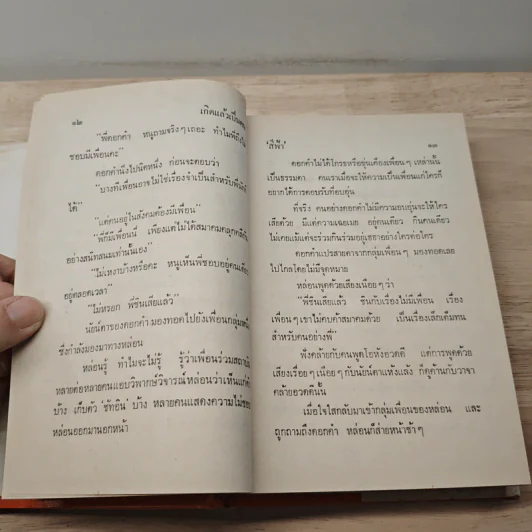 ๑๒
เกิดแล้วเป็นคน
"พี่ดอกคำ หนูถามจริงๆ เถอะ ทำไมพี่ถึงไม่
ชอบมีเพื่อนคะ"
ดอกคำนิ่งไปนิดหนึ่ง ก่อนจะตอบว่า
"บางทีเพื่อนอาจไม่ใช่เรื่องจำเป็นสำหรับพี่นักก็
ได้"
"แต่คนอยู่ในสังคมต้องมีเพื่อน"
"พี่ก็มีเพื่อนนี่ เพียงแต่ไม่ได้ไปสมาคมคลุกคลีกัน
อย่างสนิทสนมเท่านั้นเอง"
"ไม่เหงาบ้างหรือคะ หนูเห็นพี่ชอบอยู่คนเดียว
อยู่ตลอดเวลา"
"ไม่หรอก พี่ชินเสียแล้ว"
นัยน์ตาของดอกคำ มองทอดไปยังเพื่อนกลุ่มหนึ่ง
ซึ่งกำลังมองมาทางหล่อน
หล่อนรู้ ทำไมจะไม่รู้ รู้ว่าเพื่อนร่วมสถาบัน
หลายต่อหลายคนแอบวิพากษ์วิจารณ์หล่อนว่าเห็นแก่ตัว
บ้าง เก็บตัว 'ชักยิน' บ้าง หลายคนแสดงความไม่ชอบ
หล่อนออกมานอกหน้า
'สีฟ้า'
๑๓
ดอกคำไม่ได้โกรธหรือขุ่นเคืองเพื่อนๆ เหล่านั้น
เป็นธรรมดา คนเราเมื่อจะให้ความเป็นเพื่อนแก่ใครก็
อยากได้การตอบรับที่อบอุ่น
ที่จริง คนอย่างดอกคำไม่มีความอบอุ่นจะให้ใคร
เสียด้วย มีแต่ความเฉยเมย อยู่คนเดียว กินคนเดียว
ไม่เคยแม้แต่จะร่วมกินร่วมอยู่เฮฮาอย่างใครต่อใคร
ดอกคำแปรสายตาจากกลุ่มเพื่อนๆ มองทอดเลย
ไปไกลโดยไม่มีจุดหมาย
หล่อนพูดด้วยเสียงเนือยๆ ว่า
"พี่ชินเสียแล้ว ชินกับเรื่องไม่มีเพื่อน เรื่อง
เพื่อนๆ เขาไม่คบค้าสมาคมด้วย เป็นเรื่องเล็กเต็มทน
สำหรับคนอย่างพี่"
ฟังคล้ายกับคนพูดโอหังอวดดี แต่การพูดด้วย
เสียงเรื่อยๆ เนือยๆ กับนัยน์ตาแห้งแล้ง ก็ดูค้านกับวาจา
คล้ายอวดดีนั้น
เมื่อใจใสกลับมาเข้ากลุ่มเพื่อนของหล่อน และ
ถูกถามถึงดอกคำ หล่อนก็ส่ายหน้าช้าๆ